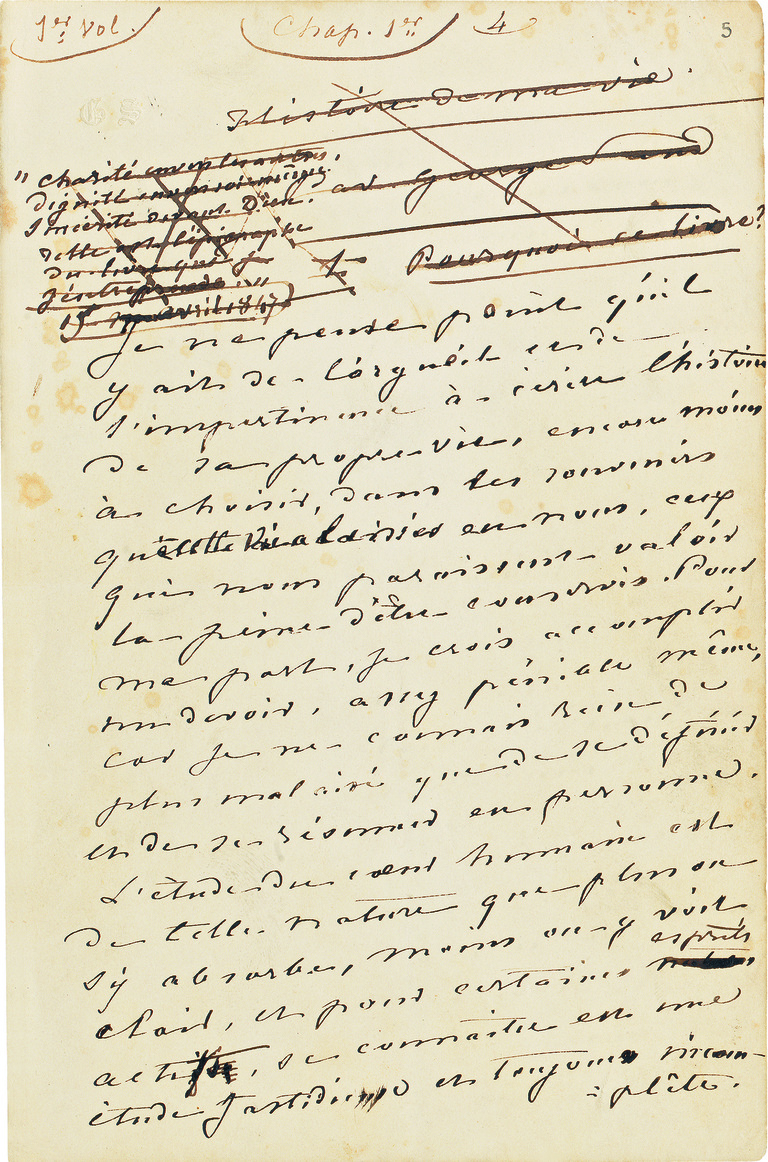 1er vol.
Chap. 1er
4
5
G S
Histoire de ma vie.
par George Sand
"Charité envers les autres,
Dignité envers soi-même,
Sincérité devant Dieu.
Telle est l'épigraphe
du livre que je
j'entreprends."
15 avril 1847
1
Pourquoi ce livre?
Je ne pense point qu'il
y ait de l'orgueil et de
l'impertinence à écrire l'histoire
de sa propre vie, encore moins
à choisir, dans les souvenirs
que cette vie a laissés en nous, ceux
qui nous paraissent valoir
la peine d'être conservés. Pour
ma part, je crois accomplir
un devoir, assez pénible même,
car je ne connais rien de
plus malaisé que de se définir
et de se résumer en personne.
L'étude du cœur humain est
de telle nature que plus on
s'y absorbe, moins on y voit
clair, et pour certains esprits
actifs, se connaître est une
étude fastidieuse et toujours incom-
=plète.